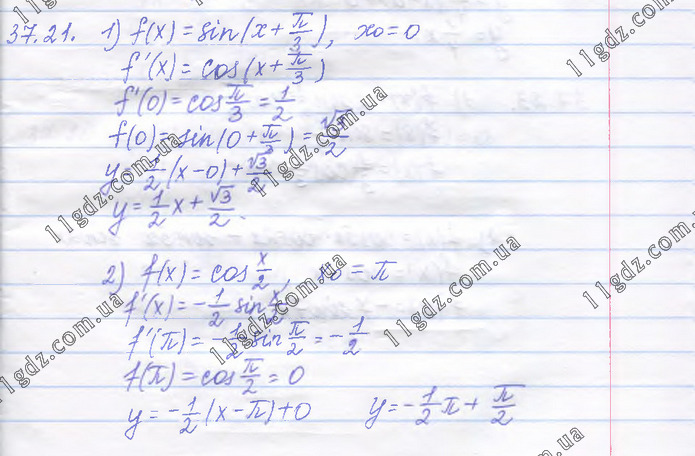 37.21. 1) f(x) = sin(x + π/3), x0 = 0
f'(x) = cos(x + π/3)
f'(0) = cos π/3 = 1/2
f(0) = sin(0 + π/3) = √3/2
y = 1/2 (x - 0) + √3/2
y = 1/2 x + √3/2.
2) f(x) = cos x/2, x0 = π
f'(x) = -1/2 sin x/2
f'(π) = -1/2 sin π/2 = -1/2
f(π) = cos π/2 = 0
y = -1/2 (x - π) + 0 y = -1/2 π + π/2
11gdz.com.ua
11gdz.com.ua
11gdz.com.ua
11gdz.com.ua
11gdz.com.ua
11gdz.com.ua